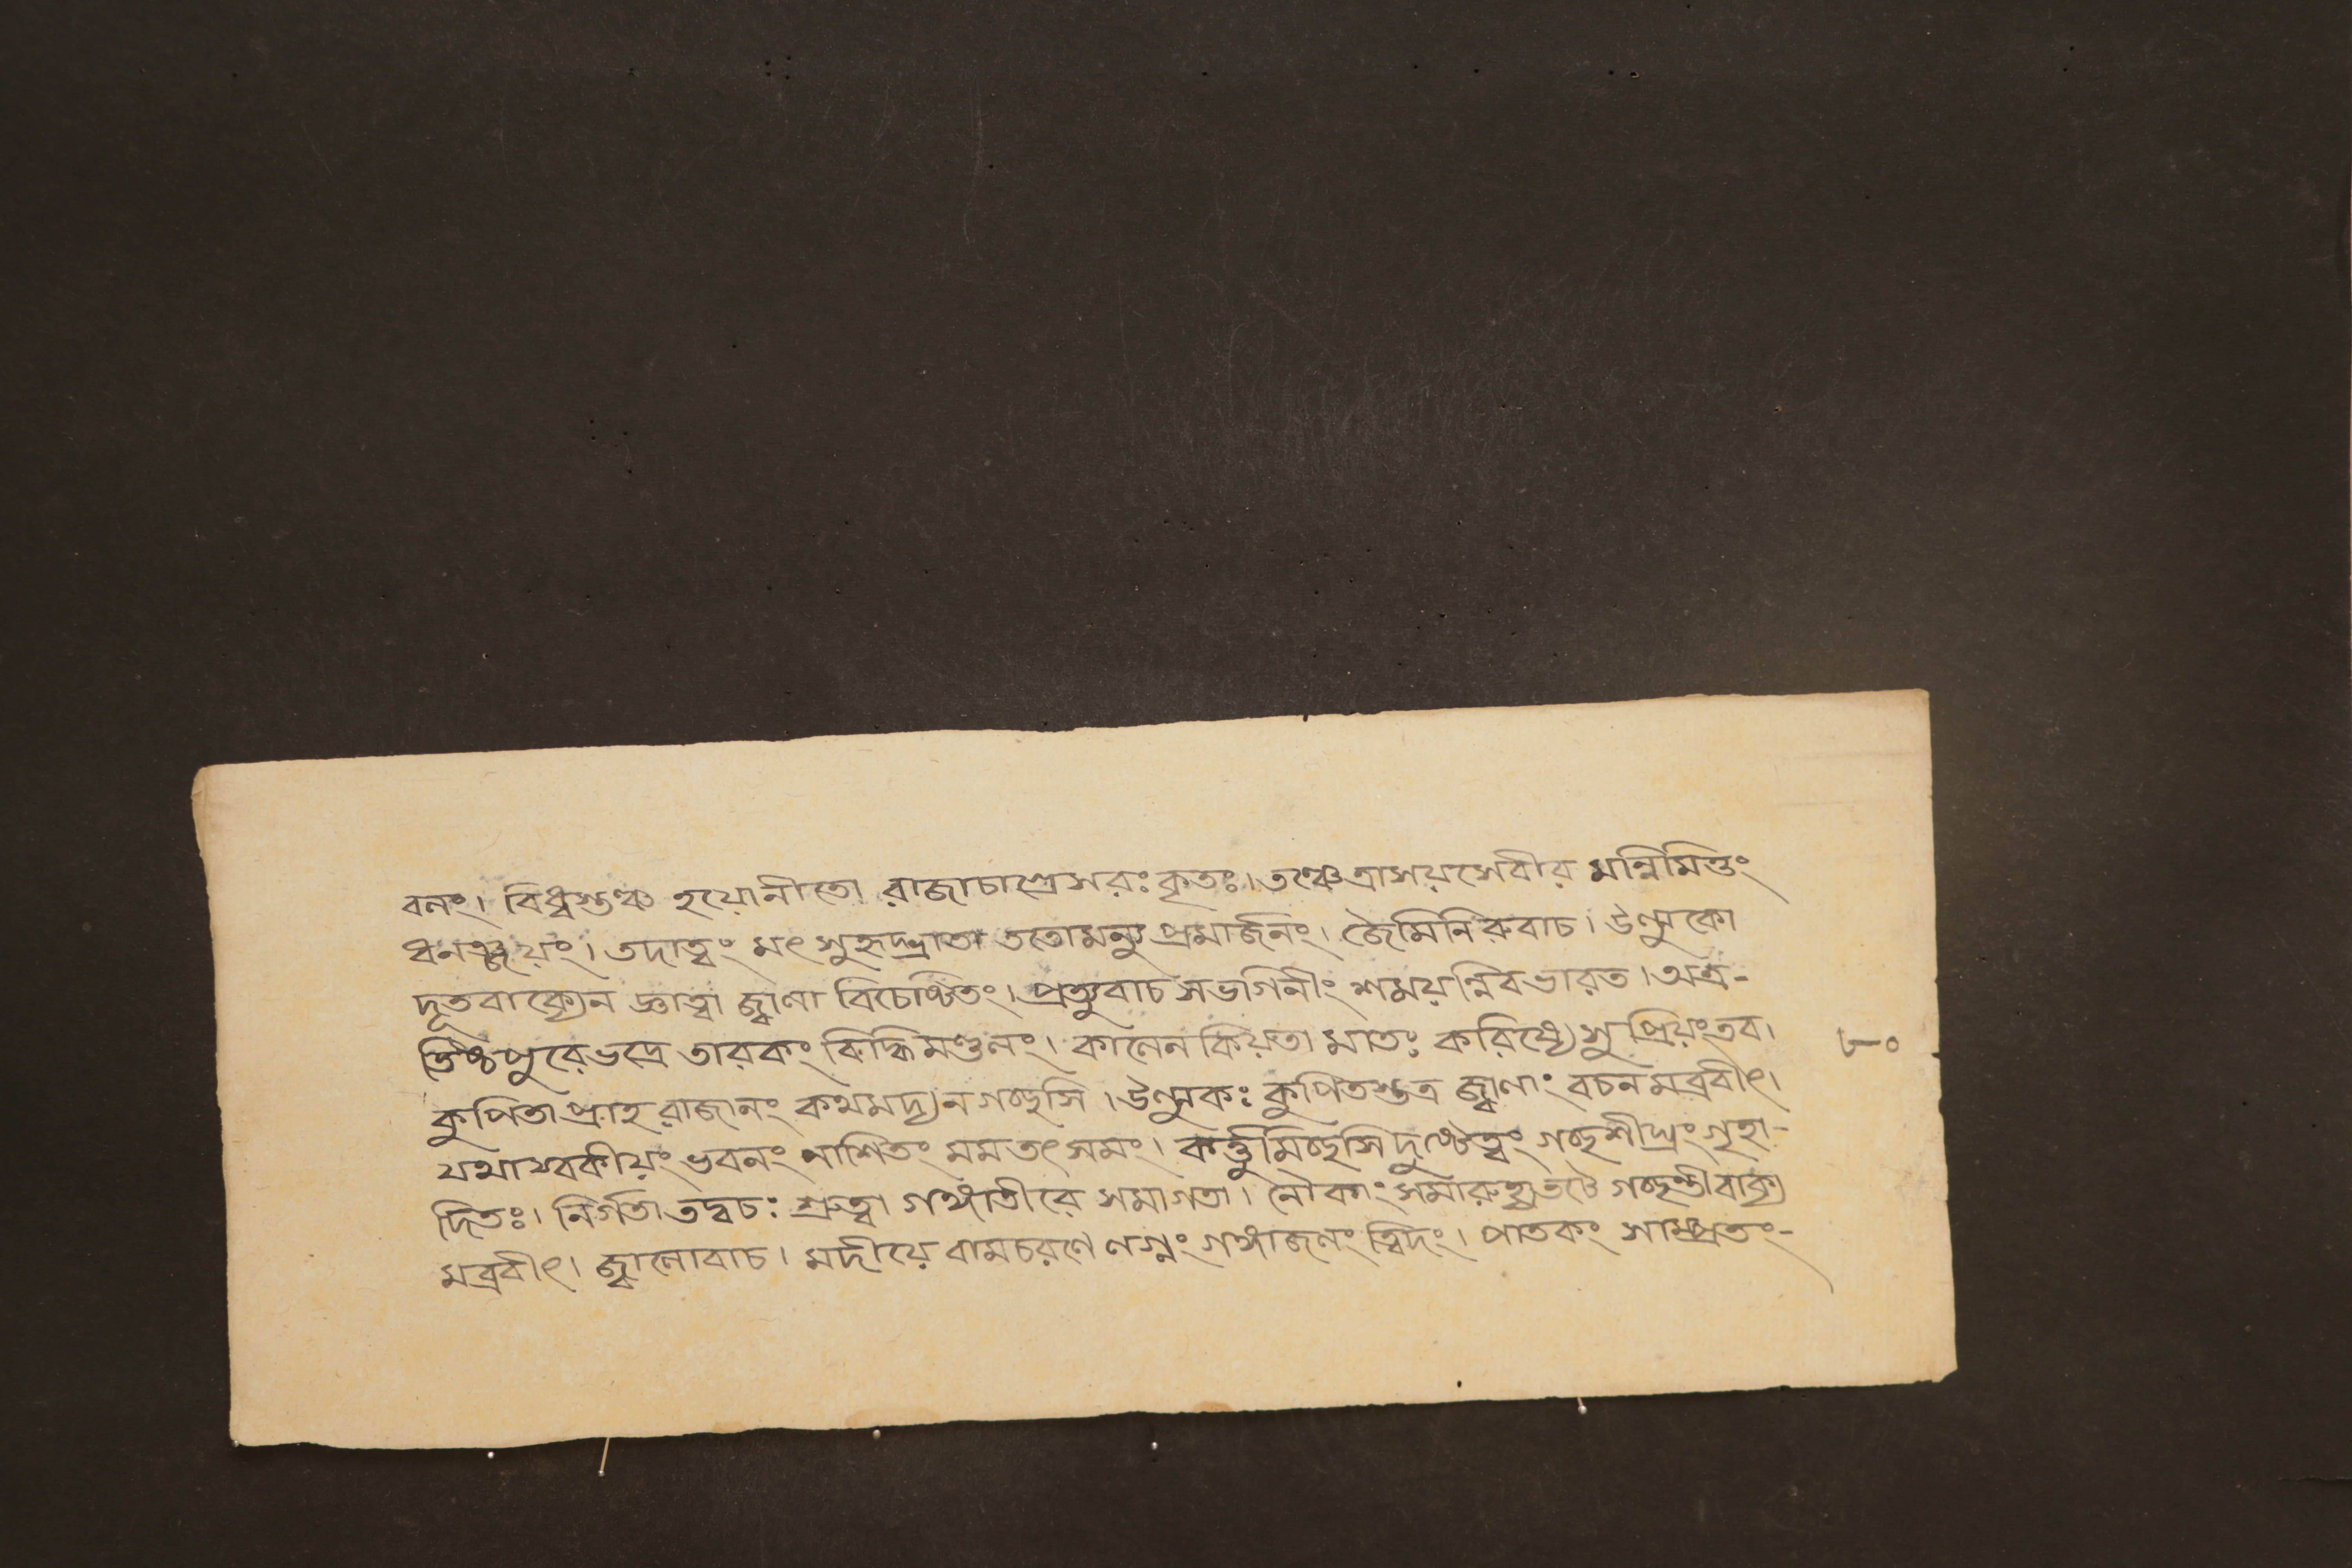 বনং। বিধ্বস্তঞ্চ হয়োনীতো রাজাচাগ্রেসরঃ কৃতঃ। তঞ্চেত্রাসয়সেবীর মন্নিমিত্তং
ধনঞ্জয়ং। তদাত্বং মৎ সুহৃদ্ভ্রাতা ততোমন্যু প্রমার্জনং। জৈমিনি রুবাচ। উল্মুকো
দূতবাক্যেন জ্ঞাত্বা জ্বালা বিচেষ্টিতং। প্রত্যুবাচ সভগিনীং শময়ন্নিবভারত। অত্র-
তিষ্ঠপুরেভদ্রে তারকং বিদ্ধিমণ্ডলং। কালেন কিয়তা মাতঃ করিষ্যে সু প্রিয়ংতব।
কুপিতা প্রাহ রাজানং কথমদ্য ন গচ্ছসি। উল্মুকঃ কুপিতস্তত্র জ্বালাং বচনমব্রবীৎ।
যথাস্বকীয়ং ভবনং নাশিতং মম তৎ সমং। কর্ত্তুমিচ্ছসি দুষ্টেত্বং গচ্ছশীঘ্রং গৃহা-
দিতঃ। নির্গতা তদ্বচঃ শ্রুত্বা গঙ্গাতীরে সমাগতা। নৌকাং সমারুহ্যতটে গচ্ছন্তীবাক্য
মব্রবীৎ। জ্বালোবাচ। মদীয়ে বামচরণে লগ্নং গঙ্গাজলং ত্বিদং। পাতকং সাম্প্রতং-
৮০